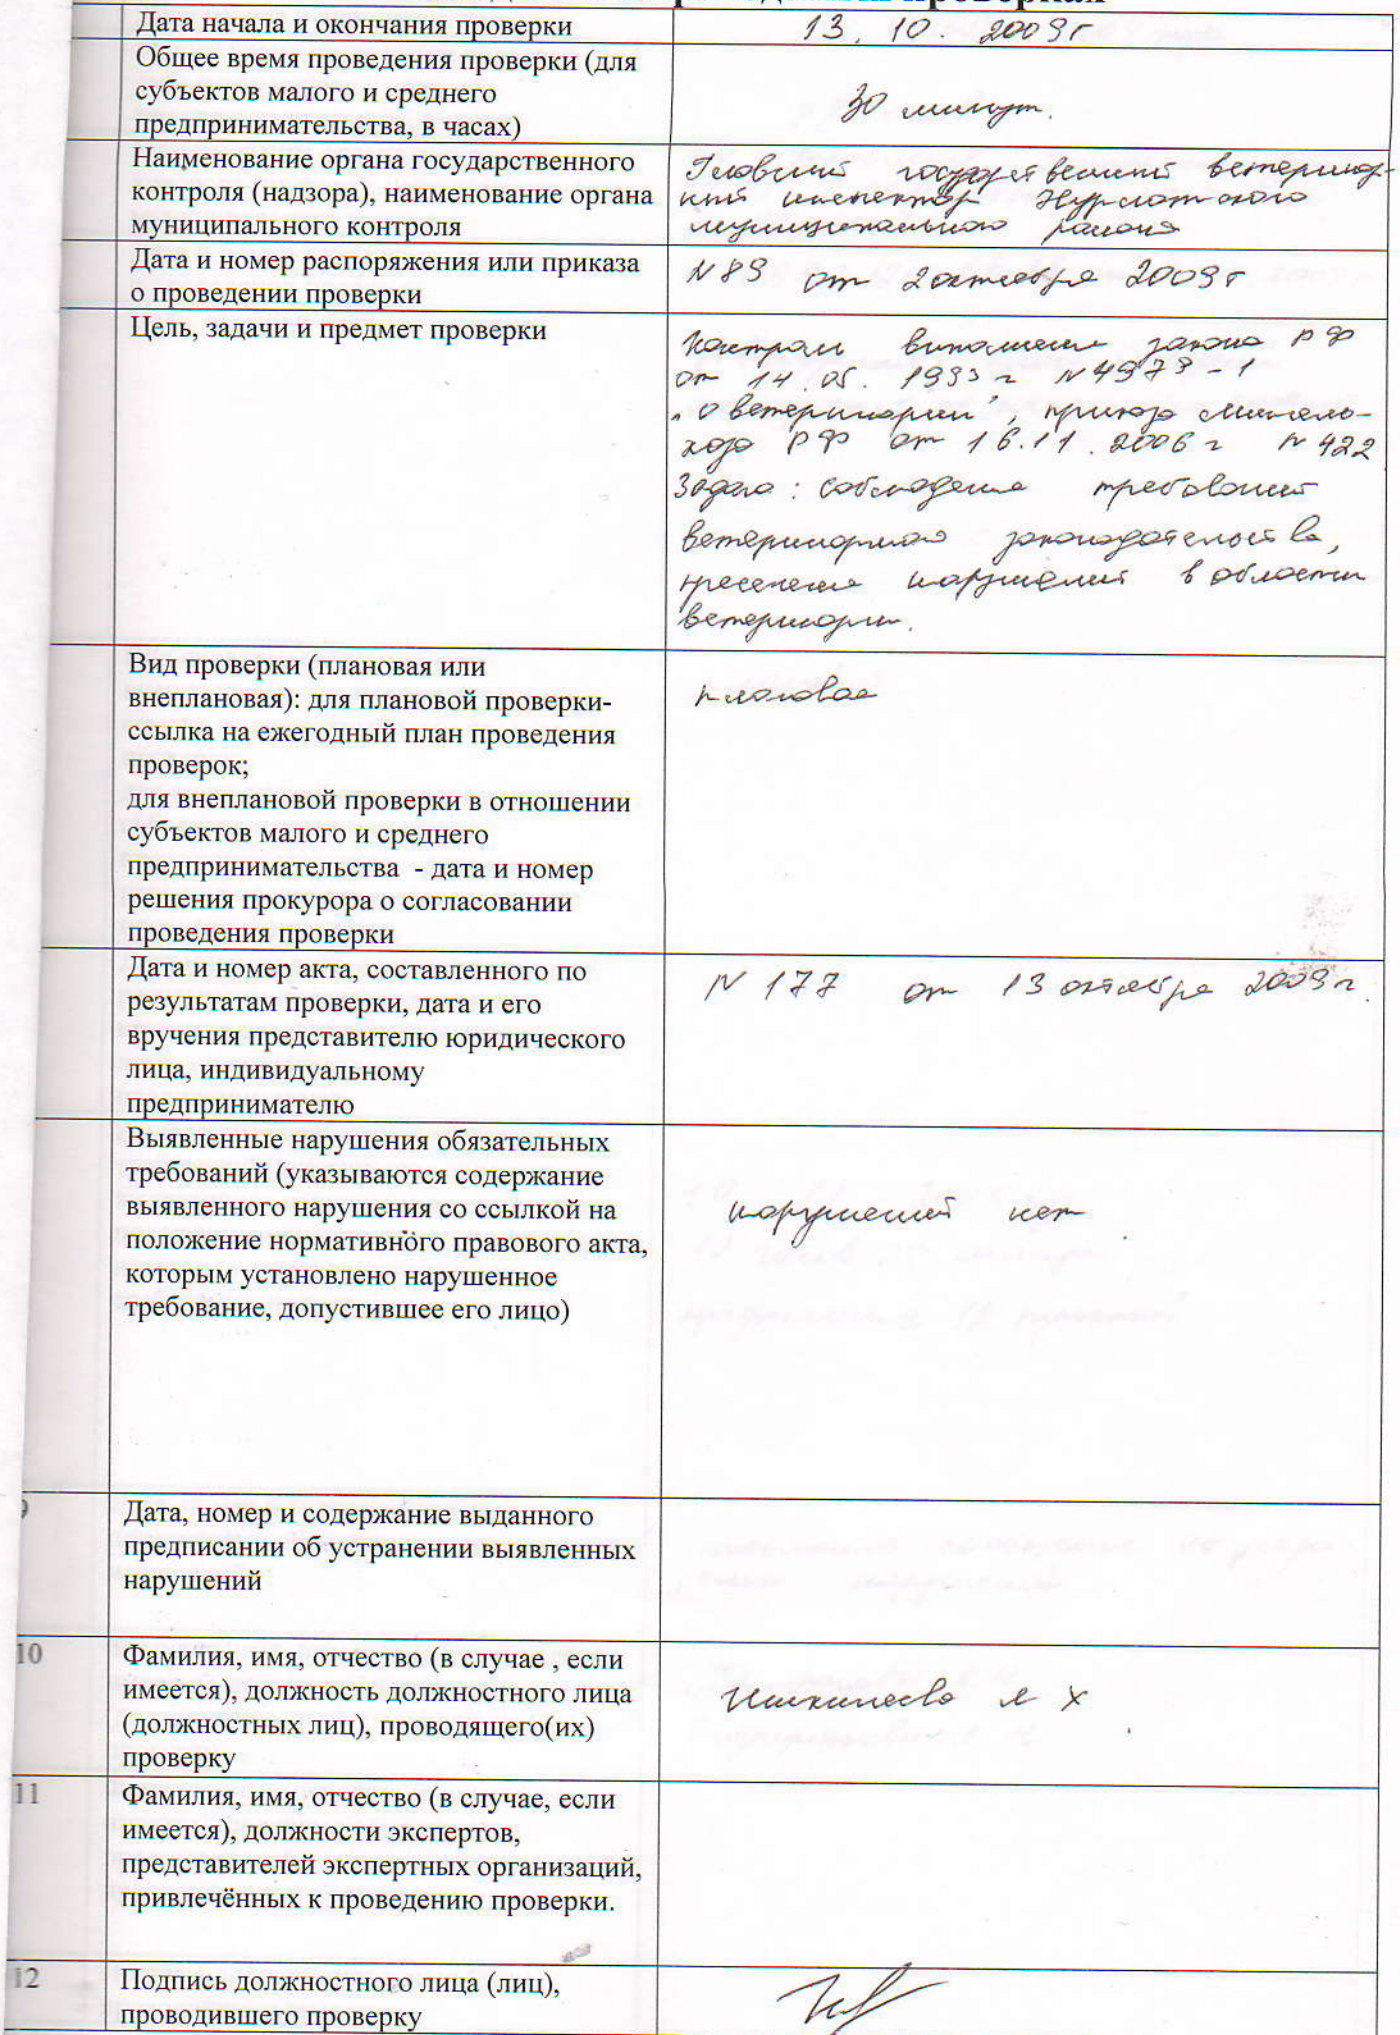 проверках
Дата начала и окончания проверки
13. 10. 2009г
Общее время проведения проверки (для
субъектов малого и среднего
предпринимательства, в часах)
30 минут.
Наименование органа государственного
контроля (надзора), наименование органа
муниципального контроля
Главный государственный ветеринар-
ный инспектор Нурлатского
муниципального района
Дата и номер распоряжения или приказа
о проведении проверки
N 89 от 2 октября 2009г
Цель, задачи и предмет проверки
Контроль выполнения закона РФ
от 14.05.1993 г N 4979-1
"О ветеринарии", приказа Минсель-
хоза РФ от 16.11.2006 г N 422
Задача: соблюдение требований
ветеринарного законодательства,
пресечение нарушений в области
ветеринарии.
Вид проверки (плановая или
внеплановая): для плановой проверки-
ссылка на ежегодный план проведения
проверок;
для внеплановой проверки в отношении
субъектов малого и среднего
предпринимательства - дата и номер
решения прокурора о согласовании
проведения проверки
плановая
Дата и номер акта, составленного по
результатам проверки, дата и его
вручения представителю юридического
лица, индивидуальному
предпринимателю
N 177 от 13 октября 2009 г.
Выявленные нарушения обязательных
требований (указываются содержание
выявленного нарушения со ссылкой на
положение нормативного правового акта,
которым установлено нарушенное
требование, допустившее его лицо)
нарушений нет.
9
Дата, номер и содержание выданного
предписании об устранении выявленных
нарушений
10
Фамилия, имя, отчество (в случае , если
имеется), должность должностного лица
(должностных лиц), проводящего(их)
проверку
Х.
11
Фамилия, имя, отчество (в случае, если
имеется), должности экспертов,
представителей экспертных организаций,
привлечённых к проведению проверки.
12
Подпись должностного лица (лиц),
проводившего проверку